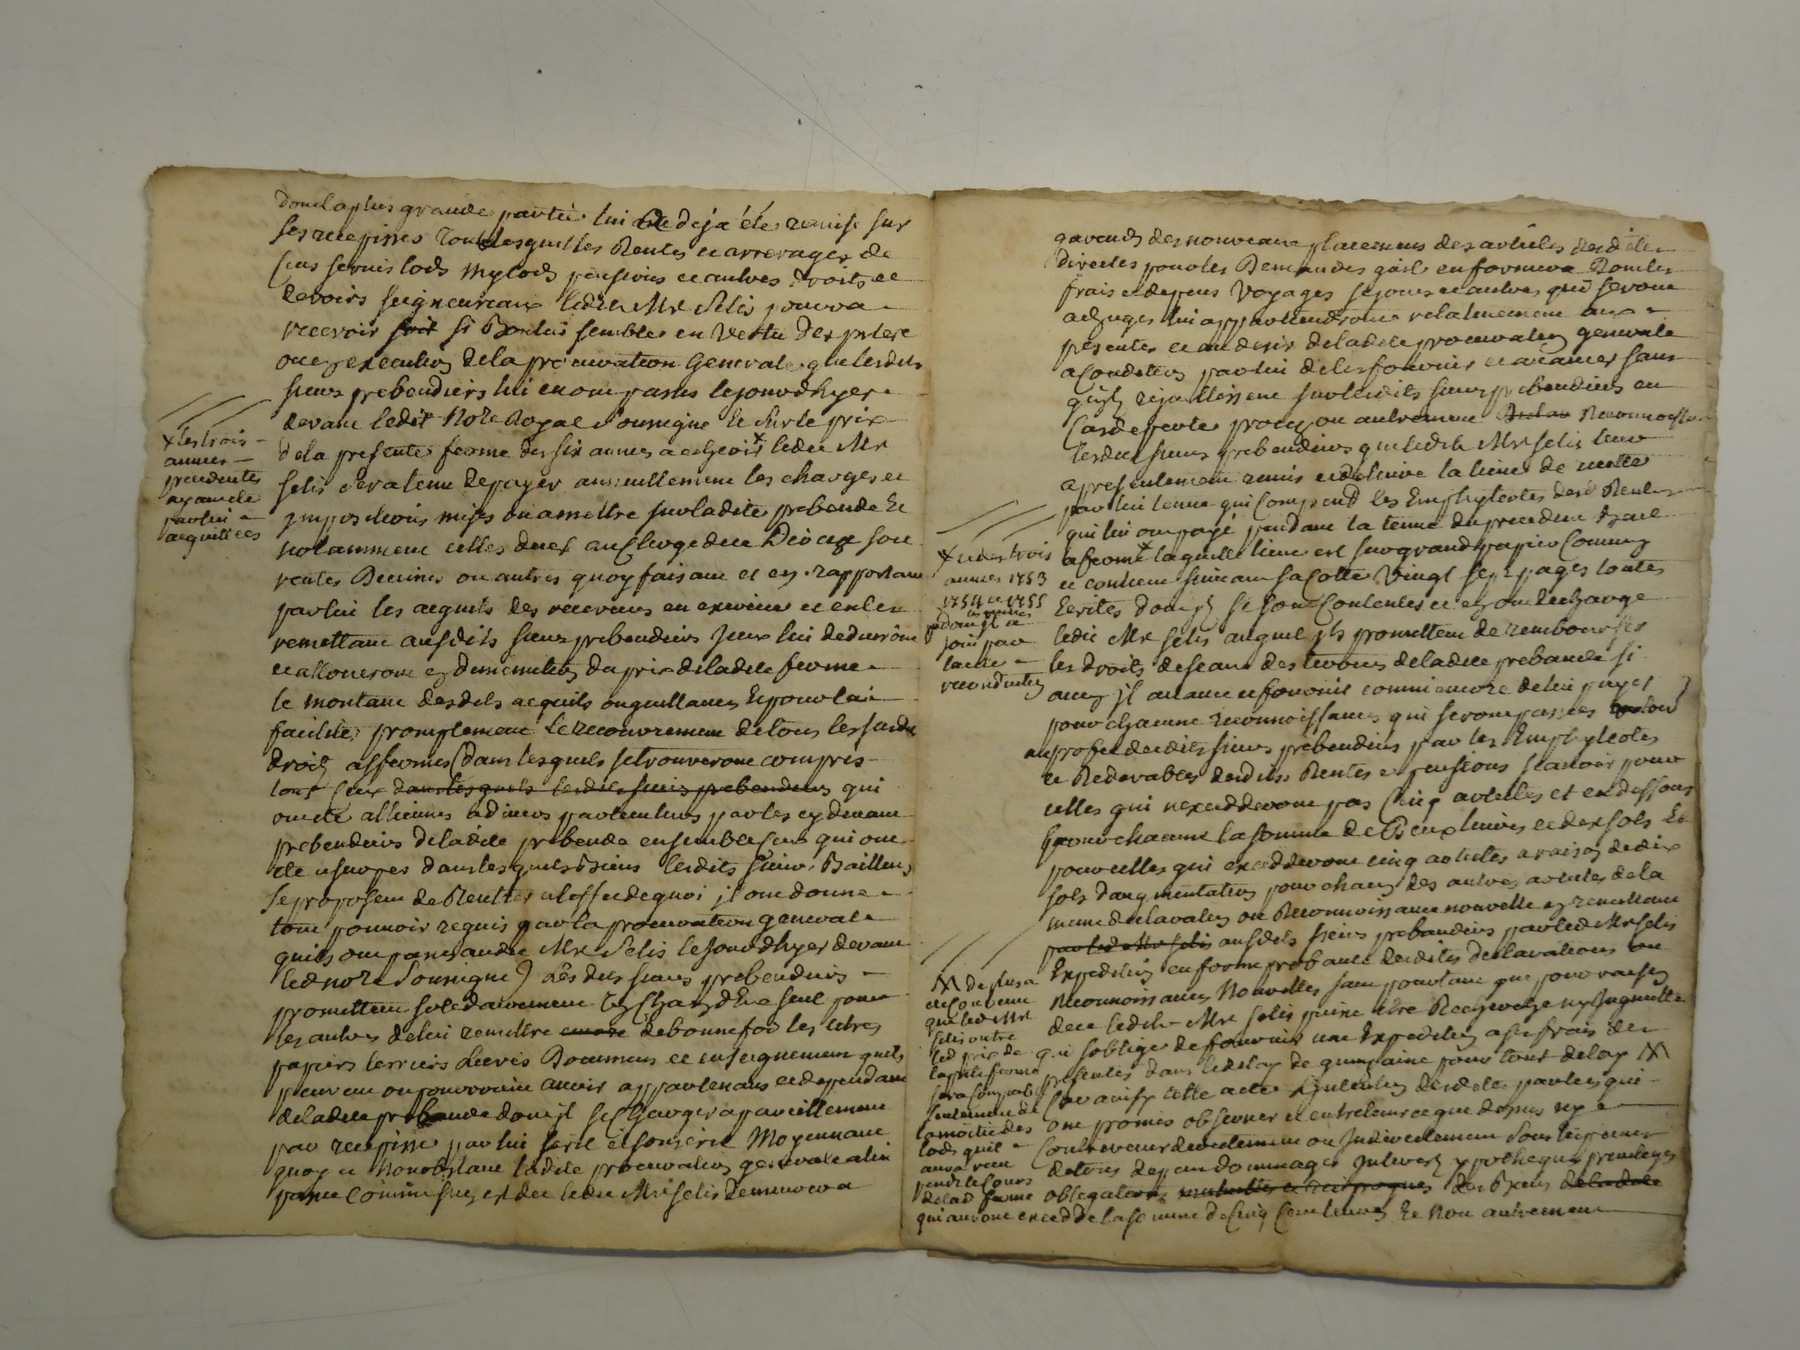 dont la plus grande partie lui a deja été remise sur
ses recepisses toutes lesquelles Rentes et arrerages de
Cens servis lods mylods pensions et autres droits et
devoirs seigneuriaux ledit Mr Selis pourra
recevoir soit si bon lui semble en vertu des pntes
ou en execution de la procuration generale que lesdits
sieurs prebendiers lui en ont passés le jourdhyer
devant ledit Notre Royal soussigne Et sur le prix
de la presente ferme des six années a echeoir x ledit Mr
x les trois
annees
precedentes
ayant ete
par lui
acquittées
selis sera tenu de payer annuellement les charges et
impositions mises ou a mettre sur ladite prebende Et
notamment celles dues au Clerge dud Dioceze soit
rentes Decimes ou autres quoy faisant et en rapportant
par lui les acquits des receveurs en exercice et en les
remettant ausdits sieurs prebendiers Iceux lui deduiront
et alloueront en diminution du prix de ladite ferme
le montant desdits acquits ou quittances Et pour lui
faciliter promptement le recouvrement de tous les susd
droits affermés (dans lesquels se trouveront compris
tous ceux dans lesquels lesdits sieurs prebendiers qui
ont ete alliennes a divers particuliers par les cy devant
prebendiers de ladite prebende ensemble ceux qui ont
été usurpés dans lesquels biens lesdits sieurs Bailleurs
se proposent de Rentrer a l'effet de quoi il ont donné
tout pouvoir requis par la procuration generale
quils ont passé audit Mr Selis le jourdhyer devant
led notre soussigne) Lesdits sieurs prebendiers
promettent solidairement lun
les autres de lui remettre encore de bonne foi les titres
papiers terriers Lieves Documens et enseignemens quils
peuvent ou pourroint avoir appartenans et dependans
de ladite prebende dont il se chargera pareillement
par recepisse par lui fait et souscrit Moyennant
quoy et nonobstant ladite procuration generale a lui
passée ledit Mr Selis demeurera
garend des nouveaux placemens des articles desdites
directes pour les Demandes quil en formera Dont les
frais et depens voyages sejours et autres qui seront
adjuges lui appartiendront relativement aux
presentes et au desir de ladite procuration generale
a Condition par lui de les fournir et avancer sans
quils rejallissent sur lesdits sieurs prebendiers en
Cas de perte de procez ou autrement
lesdits sieurs prebendiers que ledit Mr selis leur
a presentement remis et delivré la lieve de recette
par lui tenue qui Comprend les Emphyteotes desd Rentes
qui lui ont payé pendant la tenue du precedent bail
x et des trois
années 1753
1754 et 1755
dont il a
joui par
tacite
reconduction
a ferme x laquelle lieve est sur grand papier Commun
et contient suivant sa Cotte vingt sept pages toutes
Ecrites dont ils se sont Contentes et en ont decharge
ledit Mr Selis auquel ils promettent de rembourser
les droits de sceau des terriers de ladite prebande si
aucun il en avance et fournit comm'encore de lui payer
pour chacune reconnoissances qui seront passées
au profit desdits sieurs prebendiers par les Emphyteotes
et Redevables desdites Rentes et pensions scavoir pour
celles qui n'excedderont pas Cinq articles et en dessous
pour chacune la somme de Deux livres et dix sols Et
pour celles qui excedderont cinq articles a raison de dix
sols d'augmentation pour chacun des autres articles de la
meme declaration ou Reconnoissance nouvelle en remettant
par led Mr Selis ausdits sieurs prebandiers par led Mr Selis
Expedition en forme probante desdites declarations ou
Reconnoissances Nouvelles sans pourtant que pour raison
de ce ledit Mr Selis puisse etre Recherché ny Inquieté
qui soblige de fournir une Expedition a ses frais des
presentes dans le delay de quinzaine pour tout delay
Car ainsy cette acte lesdites parties qui
ont promis observer et entretenir ce que dessus ny
Contrevenir directement ou Indirectement sous les peines
de tous depens dommages Interets ypotheques privileges
obligations mutuelles et reciproques des biens de ladite
de plus a
été Convenu
que led Mr
Selis outre
led prix de
seulement de
la moitié des
lods quil
aura reçu
pendt le Cours
de lad ferme
qui auront excedde la somme de Cinq Cent livres Et Non autrement